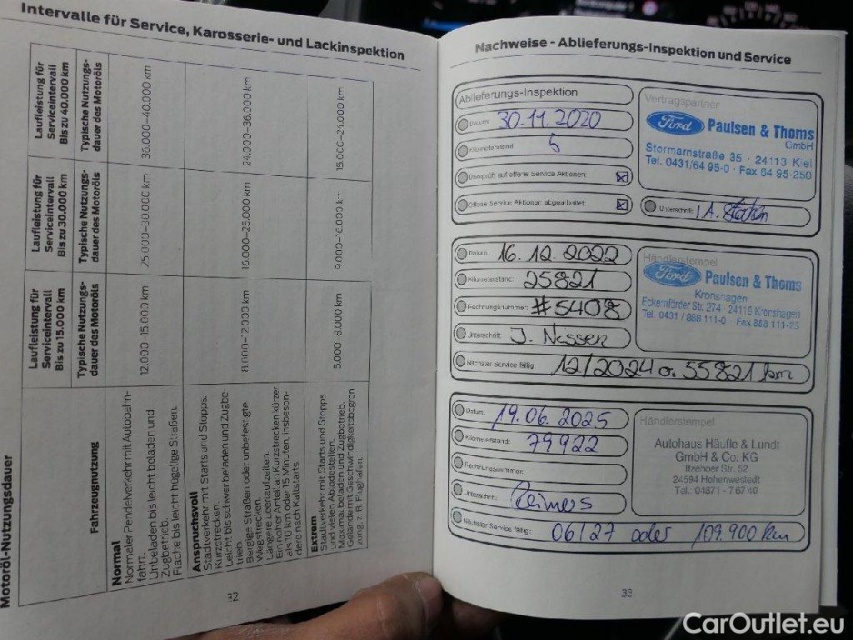 Intervalle für Service, Karosserie- und Lackinspektion
Motoröl-Nutzungsdauer
Fahrzeugnutzung
Laufleistung für
Serviceintervall
Bis zu 15.000 km
Typische Nutzungs-
dauer des Motoröls
Laufleistung für
Serviceintervall
Bis zu 30.000 km
Typische Nutzungs-
dauer des Motoröls
Laufleistung für
Serviceintervall
Bis zu 40.000 km
Typische Nutzungs-
dauer des Motoröls
Normal
Normaler Pendelverkehr mit Autobahn-
fahrt.
Unbeladen bis leicht beladen und
Zugbetrieb.
Flache bis leicht hügelige Straßen.
12.000-15.000 km
25.000-30.000 km
30.000-40.000 km
Anspruchsvoll
Stadtverkehr mit Starts und Stopps.
Kurzstrecken.
Leicht bis schwer beladen und Zugbe
trieb.
Bergige Straßen oder unbefestigte
Wegstrecken.
Längere Leerlaufzeiten.
8.000-12.000 km
24.000-36.000 km
Extrem
Stadtverkehr mit Starts und Stopps
Maximal beladen und Zugbetrieb.
32
Nachweise - Ablieferungs-Inspektion und Service
Ablieferungs-Inspektion
Datum: 30.11.2020
Kilometerstand: 5
Überprüft auf offene Service Aktionen:
Offene Service Aktionen abgearbeitet:
Vertragspartner
Ford Paulsen & Thoms
GmbH
Stormarnstraße 35 · 24113 Kiel
Tel. 0431/64 95-0 · Fax 64 95-250
Unterschrift:
Datum: 16.12.2022
Kilometerstand: 25821
Rechnungsnummer: #5408
Unterschrift: J. Nissen
Nächster Service fällig: 12/2024 o. 55821 km
Händlerstempel
Ford Paulsen & Thoms
Kronshagen
Eckernförder Str. 274 · 24119 Kronshagen
Tel. 0431 / 888 111-0 Fax 888 111-25
Datum: 19.06.2025
Kilometerstand: 79922
Rechnungsnummer:
Unterschrift: Reimers
Nächster Service fällig: 06/27 oder 109.900 km
Händlerstempel
Autohaus Häufle & Lundt
GmbH & Co. KG
Itzehoer Str. 52
24594 Hohenwestedt
Tel. 04871 - 767 40
33
CarOutlet.eu